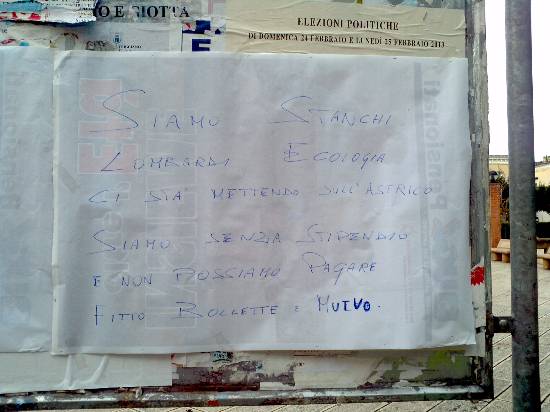 IO E GIOTTA
ELEZIONI POLITICHE
DI DOMENICA 24 FEBBRAIO E LUNEDÌ 25 FEBBRAIO 2013
SIAMO STANCHI
LOMBARDI ECOLOGIA
CI STA METTENDO SULL'ASTRICO
SIAMO SENZA STIPENDIO
E NON POSSIAMO PAGARE
FITTO BOLLETTE E MUTUO.